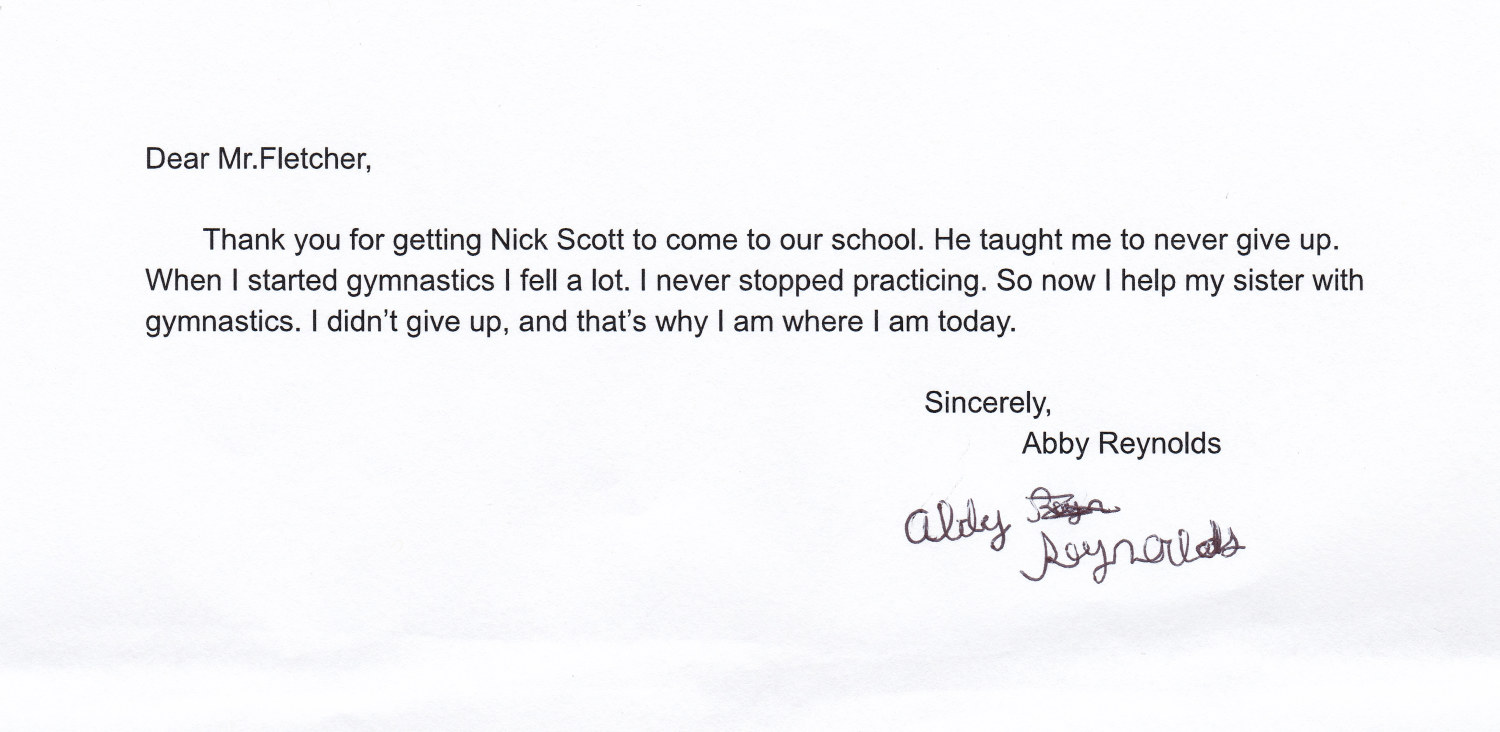 Dear Mr.Fletcher,
Thank you for getting Nick Scott to come to our school. He taught me to never give up.
When I started gymnastics I fell a lot. I never stopped practicing. So now I help my sister with
gymnastics. I didn’t give up, and that’s why I am where I am today.
Sincerely,
Abby Reynolds
Abby
Reynolds